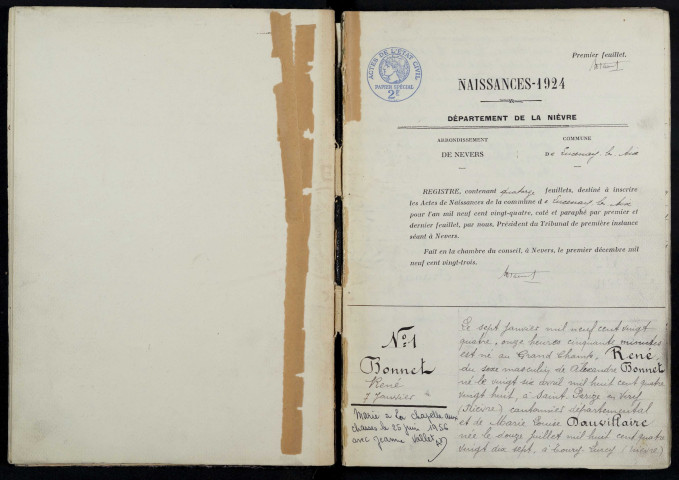 Premier feuillet.
ACTES DE L'ETAT CIVIL
PAPIER SPÉCIAL
2F
NAISSANCES-1924
DÉPARTEMENT DE LA NIÈVRE
ARRONDISSEMENT
DE NEVERS
COMMUNE
DE Lucenay les Aix
REGISTRE, contenant quatorze feuillets, destiné à inscrire
les Actes de Naissances de la commune de Lucenay les Aix
pour l'an mil neuf cent vingt-quatre, coté et paraphé par premier et
dernier feuillet, par nous, Président du Tribunal de première instance
séant à Nevers.
Fait en la chambre du conseil, à Nevers, le premier décembre mil
neuf cent vingt-trois.
N° 1
Bonnet
René
7 Janvier
Marié à La Chapelle aux
chasses le 25 juin 1956
avec Jeanne Vallet
Le sept janvier mil neuf cent vingt
quatre, onze heures cinquante minutes
est né au Grand Champ, René
du sexe masculin de Alexandre Bonnet
né le vingt six avril mil huit cent quatre
vingt huit, à Saint Parize en Viry
(Nièvre) cantonnier départemental
et de Marie Louise Dauvillaire
née le douze juillet mil huit cent quatre
vingt dix sept, à Toury Lurcy (Nièvre)